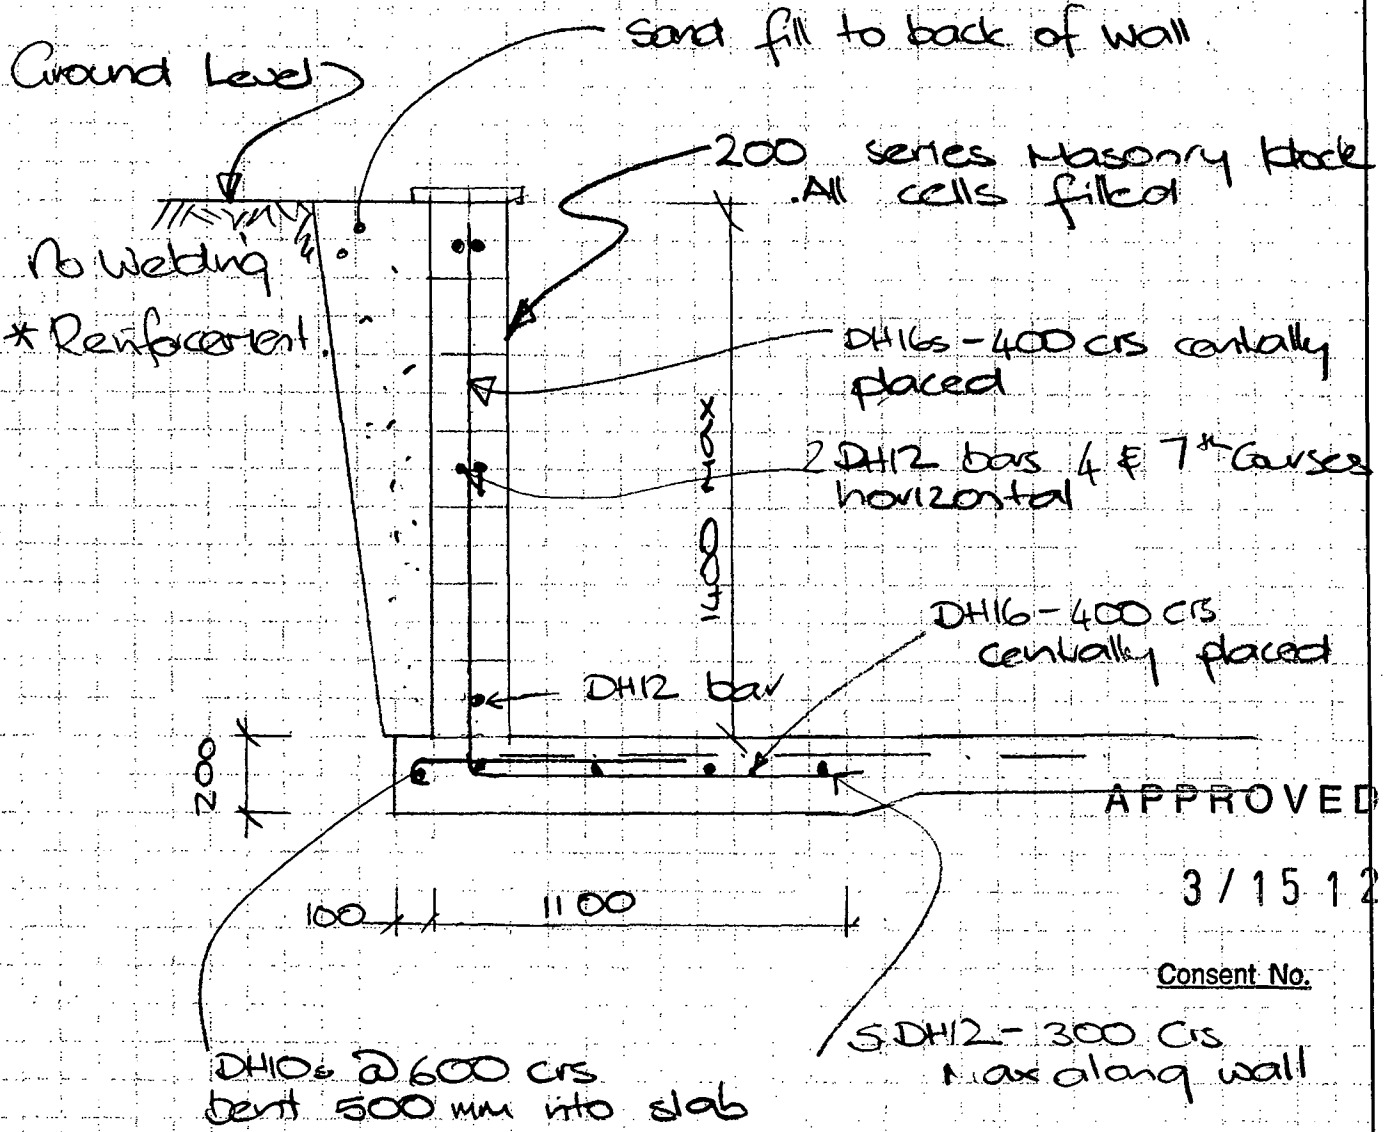 Sand fill to back of wall.
Ground Level
200 series Masonry block
.All cells filled
No Welding
* Reinforcement.
DH16s - 400 crs centrally
placed
2 DH12 bars 4 & 7th Courses
horizontal
1400 Max
DH16 - 400 crs
centrally placed
DH12 bar
200
APPROVED
3 / 15 12
100
1100
Consent No.
5 DH12 - 300 Crs
Max along wall
DH10s @ 600 crs
bent 500 mm into slab